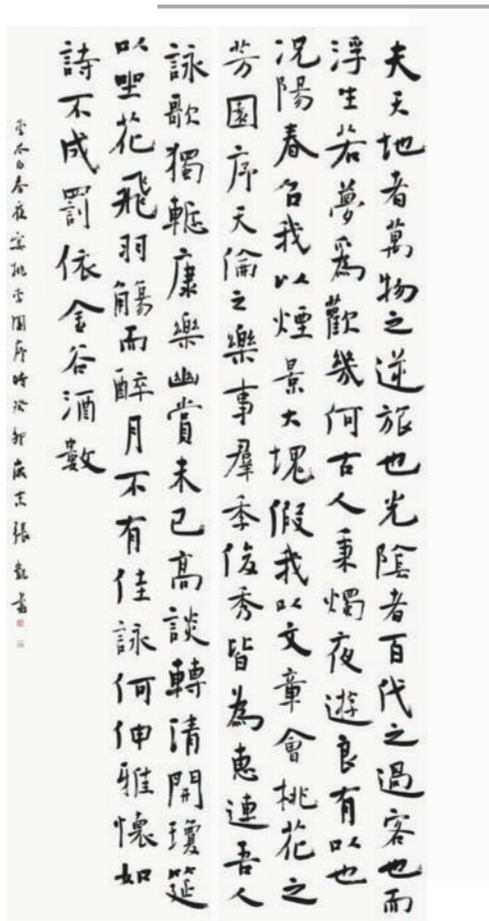 夫天地者萬物之逆旅也光陰者百代之過客也而
浮生若夢爲歡幾何古人秉燭夜遊良有以也
況陽春召我以煙景大塊假我以文章會桃花之
芳園序天倫之樂事羣季俊秀皆為惠連吾人
詠歌獨慙康樂幽賞未已高談轉清開瓊筵
以坐花飛羽觴而醉月不有佳詠何伸雅懷如
詩不成罰依金谷酒數
李太白春夜宴桃李園序時癸卯歲末張凱書